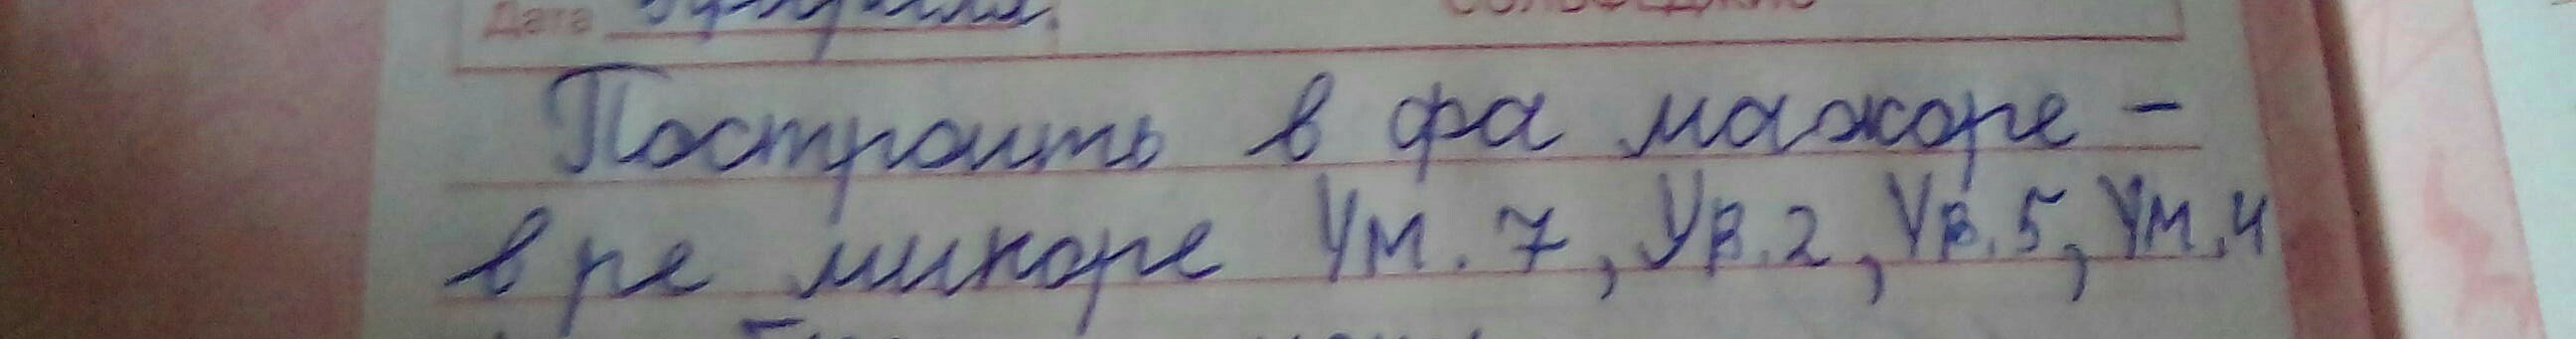 Дата
СОЛЬФЕДЖИО
Построить в фа мажоре -
в ре миноре Ум. 7, Ув. 2, Ув. 5, Ум. 4